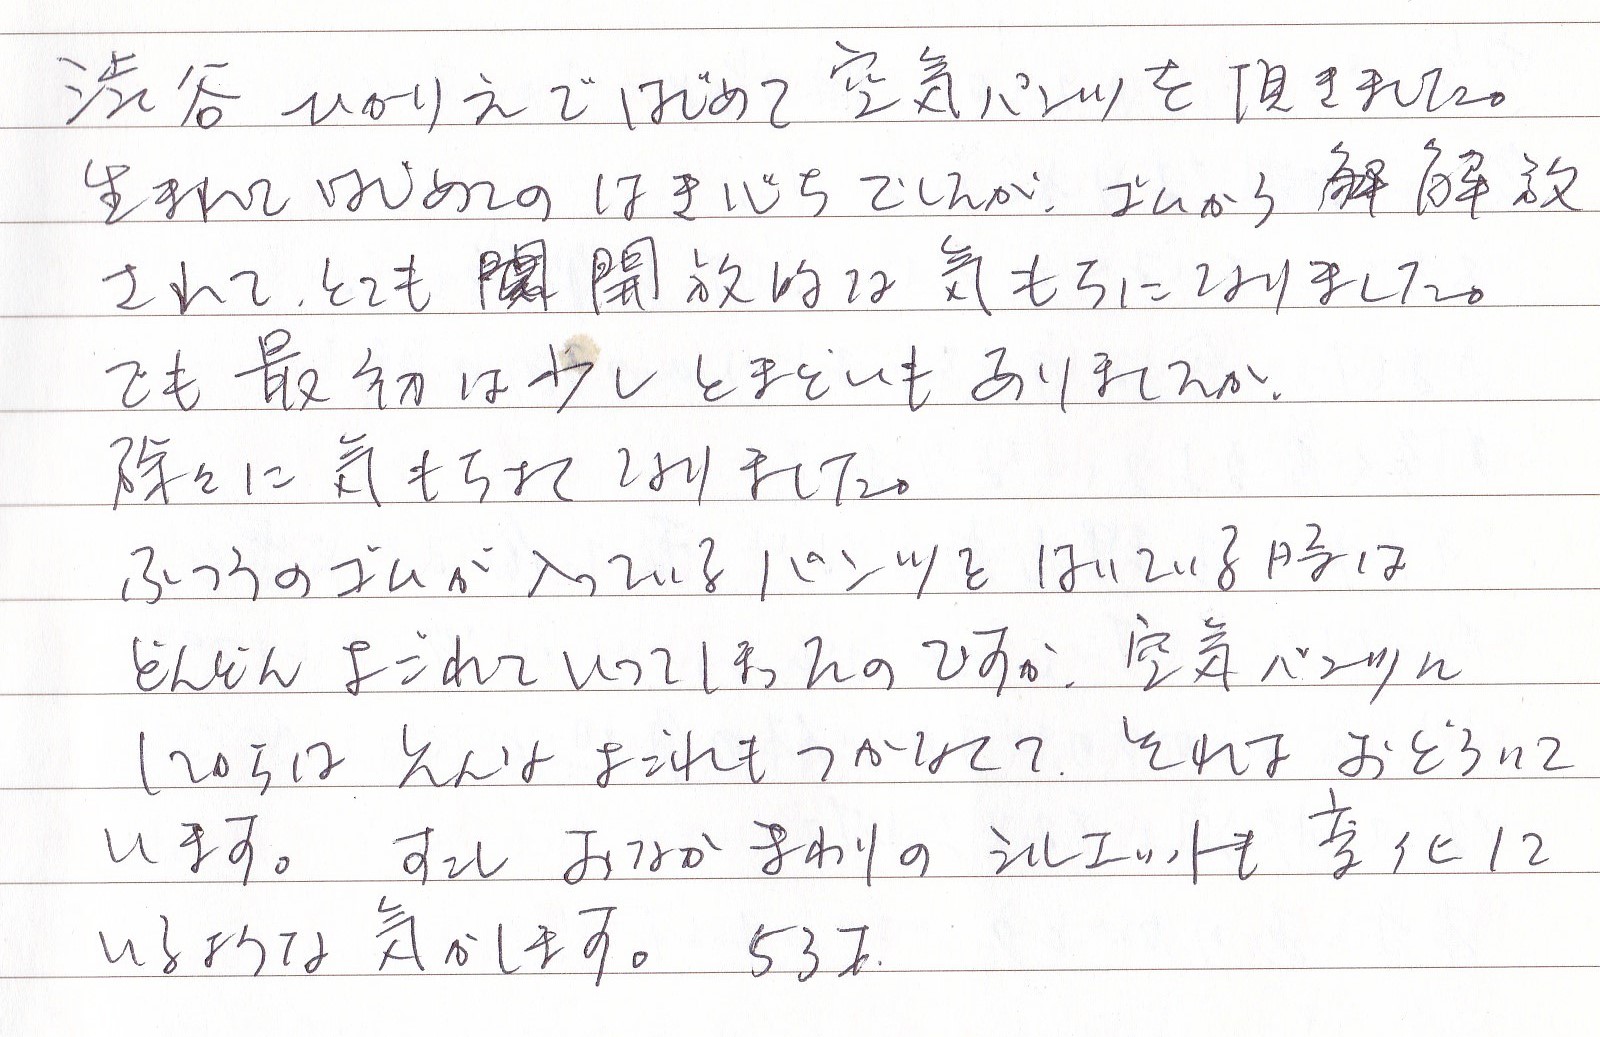 渋谷 ひかりえではじめて 空気パンツを 頂きました。
生まれてはじめての はき心ちでしたが、ゴムから 解放
されて、とても 開放的な 気もちになりました。
でも 最初は少し とまどいも ありましたが、
除々に 気もちよく なりました。
ふつうのゴムが入っている パンツを はいている時は
どんどん よごれて いってしまったのですが、空気パンツに
してからは そんな よごれも つかなくて、それは おどろいて
います。 すこし おなか まわりの シルエットも 変化して
いるような 気がします。 53才。